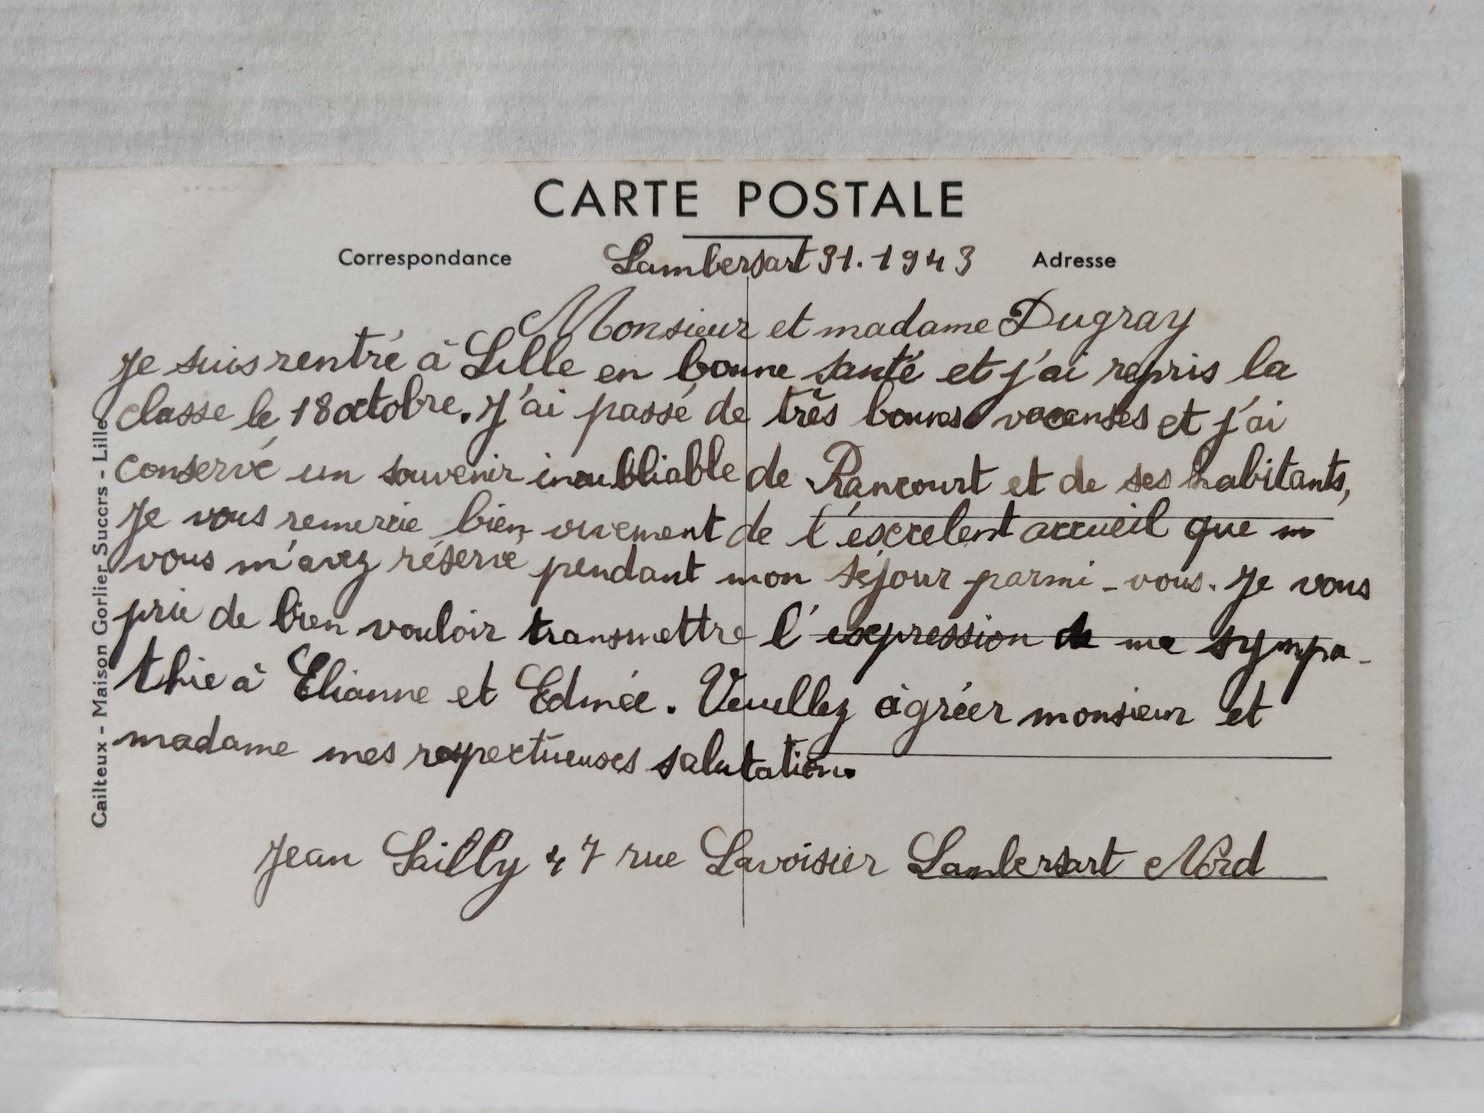 CARTE POSTALE
Correspondance
Adresse
Lambersart 31.1943
Monsieur et madame Dugray
Je suis rentré à Lille en bonne santé et j'ai repris la
classe le 18 octobre. J'ai passé de très bonnes vacanses et j'ai
conservé un souvenir inoubliable de Rancourt et de ses habitants,
Je vous remercie bien vivement de l'excelent accueil que m
vous m'avez réservé pendant mon séjour parmi-vous. Je vous
prie de bien vouloir transmettre l'expression de ma sympa-
thie à Elianne et Edmée. Veuillez agréer monsieur et
madame mes respectueuses salutation.
Jean Sailly 47 rue Lavoisier Lambersart Nord
Cailteux - Maison Gorlier Succrs - Lille